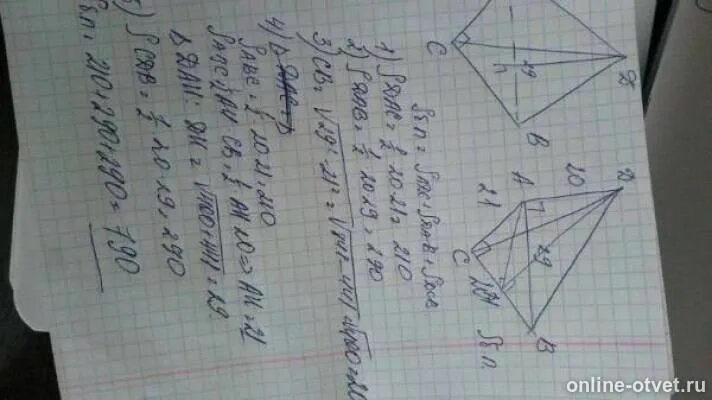 Sбп = SDAC + SDAB + SDCB
1) SDAC = 1/2 20·21 = 210
2) SDAB = 1/2 20·29 = 290
3) CB = √29²-21² = √841-441 = √400 = 20
4)
SABC = 1/2 20·21 = 210
SABC = 1/2 AH·CB = 1/2 AH·20 => AH = 21
Δ DAH: DH = √400+441 = 29
5) SCDB = 1/2 ·20·29 = 290
Sбп = 210+290+290 = 790
C
29
B
D
A
20
D
21
C
29
H
B
Sбп
online-otvet.ru